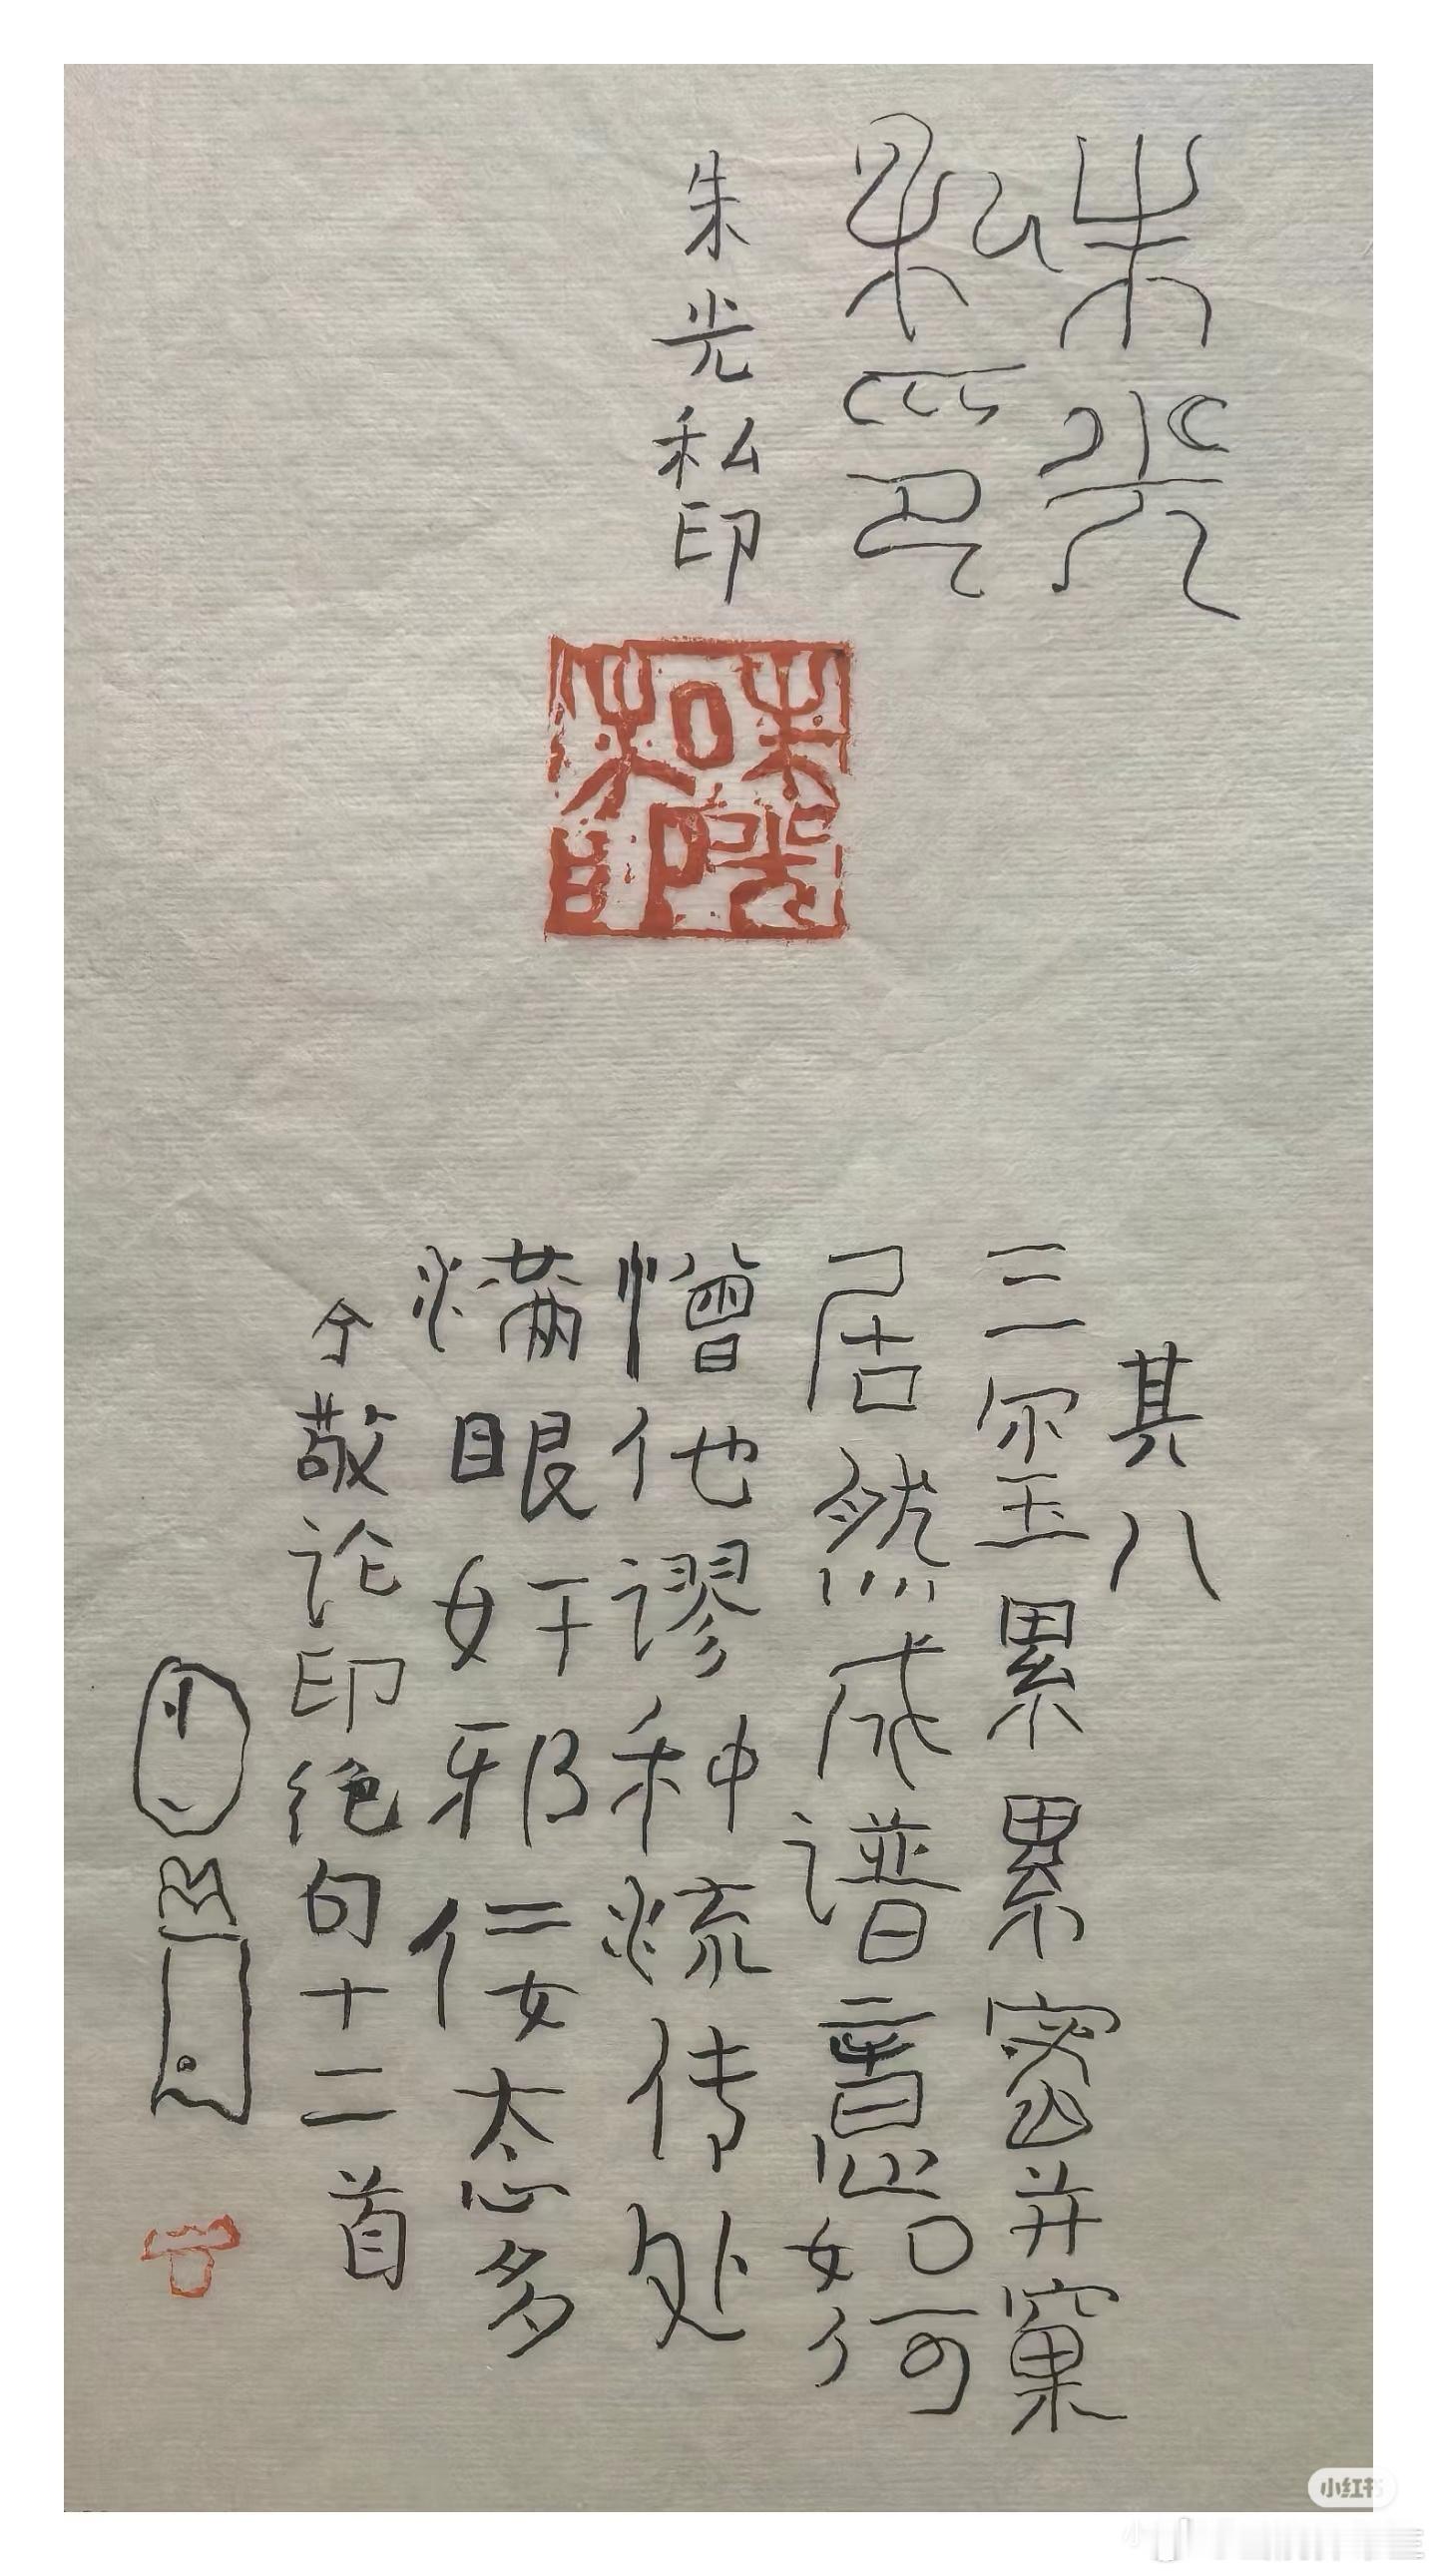 朱光
私印
朱光私印
朱光
私印
其八
三玺累累密并窠
居然成谱意如何
憎他谬种流传处
满眼奸邪佞态多
今敬论印绝句十二首
小红书